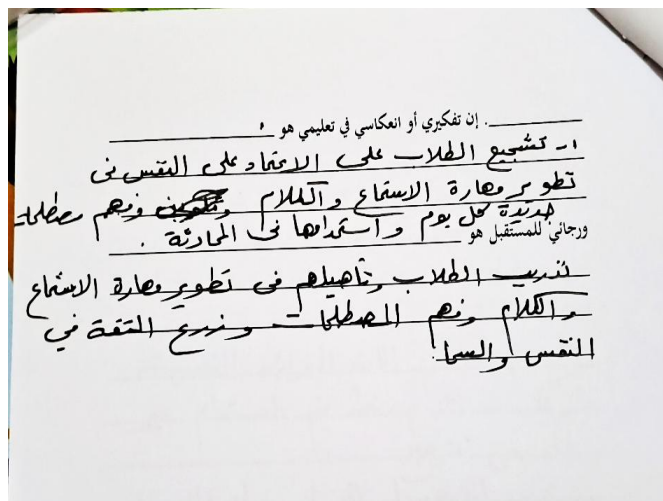 . إن تفكيري أو انعكاسي في تعليمي هو
١- تشجيع الطلاب على الاعتماد على النفس فى
تطوير مهارة الاستماع والكلام وفهم مصطلحات
جديدة كل يوم واستخدامها فى المحادثة .
ورجائي للمستقبل هو
تدريب الطلاب وتأهيلهم فى تطوير مهارة الاستماع
والكلام وفهم المصطلحات وزرع الثقة في
النفس